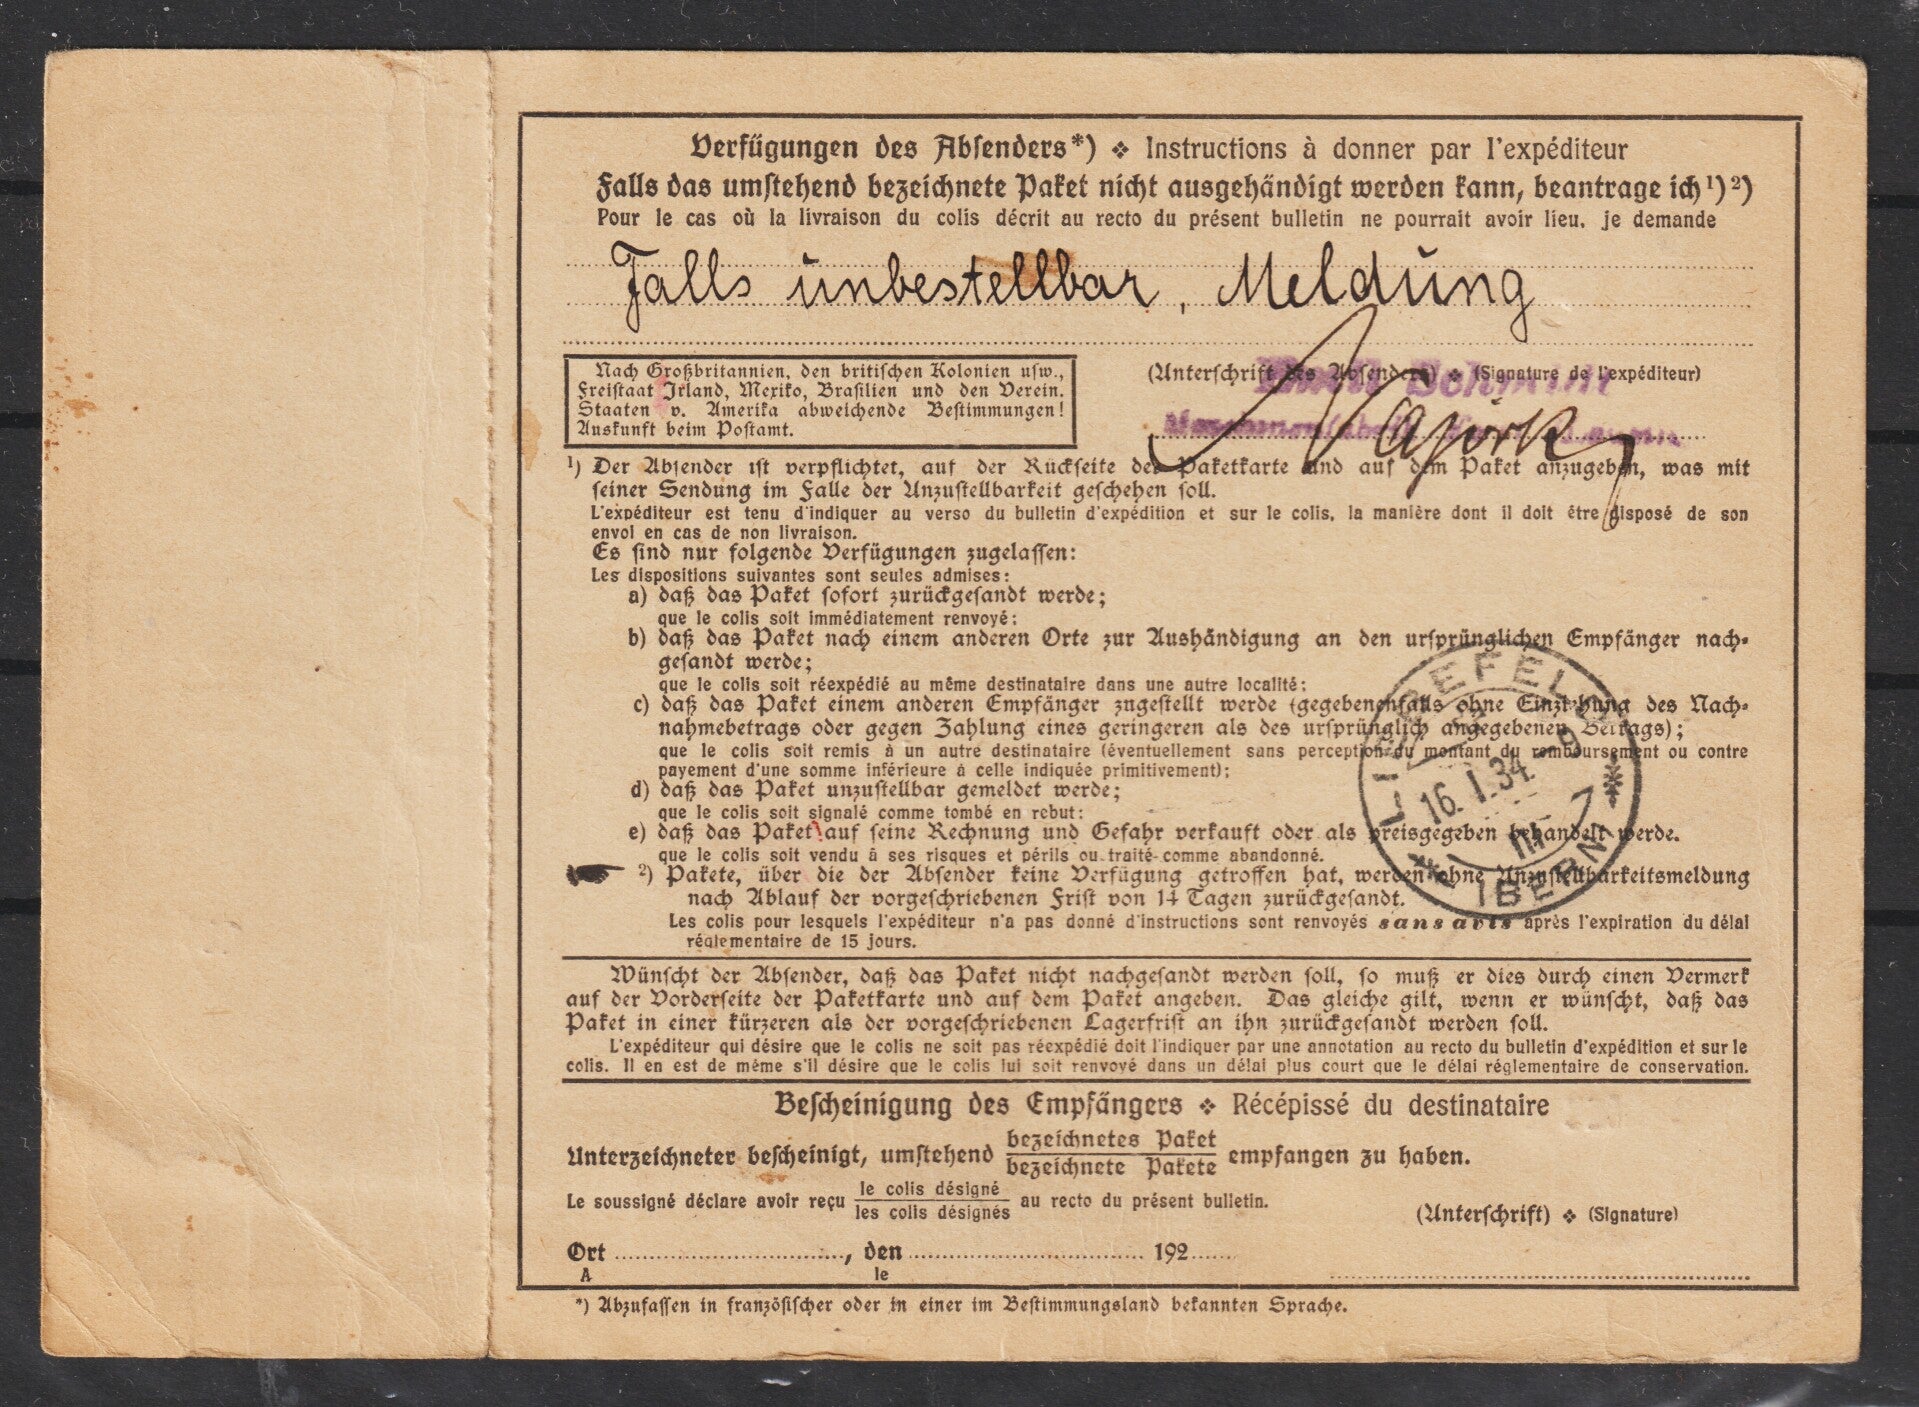 Verfügungen des Absenders*) ❖ Instructions à donner par l'expéditeur
Falls das umstehend bezeichnete Paket nicht ausgehändigt werden kann, beantrage ich ¹) ²)
Pour le cas où la livraison du colis décrit au recto du présent bulletin ne pourrait avoir lieu, je demande
Falls unbestellbar, Meldung
Nach Großbritannien, den britischen Kolonien usw.,
Freistaat Irland, Mexiko, Brasilien und den Verein.
Staaten v. Amerika abweichende Bestimmungen!
Auskunft beim Postamt.
(Unterschrift des Absenders) ❖ (Signature de l'expéditeur)
¹) Der Absender ist verpflichtet, auf der Rückseite der Paketkarte und auf dem Paket anzugeben, was mit
seiner Sendung im Falle der Unzustellbarkeit geschehen soll.
L'expéditeur est tenu d'indiquer au verso du bulletin d'expédition et sur le colis, la manière dont il doit être disposé de son
envoi en cas de non livraison.
Es sind nur folgende Verfügungen zugelassen:
Les dispositions suivantes sont seules admises:
a) daß das Paket sofort zurückgesandt werde;
que le colis soit immédiatement renvoyé:
b) daß das Paket nach einem anderen Orte zur Aushändigung an den ursprünglichen Empfänger nach-
gesandt werde;
que le colis soit réexpédié au même destinataire dans une autre localité:
c) daß das Paket einem anderen Empfänger zugestellt werde (gegebenenfalls ohne Einziehung des Nach-
nahmebetrags oder gegen Zahlung eines geringeren als des ursprünglich angegebenen Betrags);
que le colis soit remis à un autre destinataire (éventuellement sans perception du montant du remboursement ou contre
payement d'une somme inférieure à celle indiquée primitivement);
d) daß das Paket unzustellbar gemeldet werde;
que le colis soit signalé comme tombé en rebut:
e) daß das Paket auf seine Rechnung und Gefahr verkauft oder als preisgegeben behandelt werde.
que le colis soit vendu à ses risques et périls ou traité comme abandonné.
²) Pakete, über die der Absender keine Verfügung getroffen hat, werden ohne Unzustellbarkeitsmeldung
nach Ablauf der vorgeschriebenen Frist von 14 Tagen zurückgesandt.
Les colis pour lesquels l'expéditeur n'a pas donné d'instructions sont renvoyés sans avis après l'expiration du délai
réglementaire de 15 jours.
LIEBEFELD
16. I. 34
b. BERN
Wünscht der Absender, daß das Paket nicht nachgesandt werden soll, so muß er dies durch einen Vermerk
auf der Vorderseite der Paketkarte und auf dem Paket angeben. Das gleiche gilt, wenn er wünscht, daß das
Paket in einer kürzeren als der vorgeschriebenen Lagerfrist an ihn zurückgesandt werden soll.
L'expéditeur qui désire que le colis ne soit pas réexpédié doit l'indiquer par une annotation au recto du bulletin d'expédition et sur le
colis. Il en est de même s'il désire que le colis lui soit renvoyé dans un délai plus court que le délai réglementaire de conservation.
Bescheinigung des Empfängers ❖ Récépissé du destinataire
Unterzeichneter bescheinigt, umstehend bezeichnetes Paket / bezeichnete Pakete empfangen zu haben.
Le soussigné déclare avoir reçu le colis désigné / les colis désignés au recto du présent bulletin.
(Unterschrift) ❖ (Signature)
Ort ................, den ................ 192......
A le
*) Abzufassen in französischer oder in einer im Bestimmungsland bekannten Sprache.